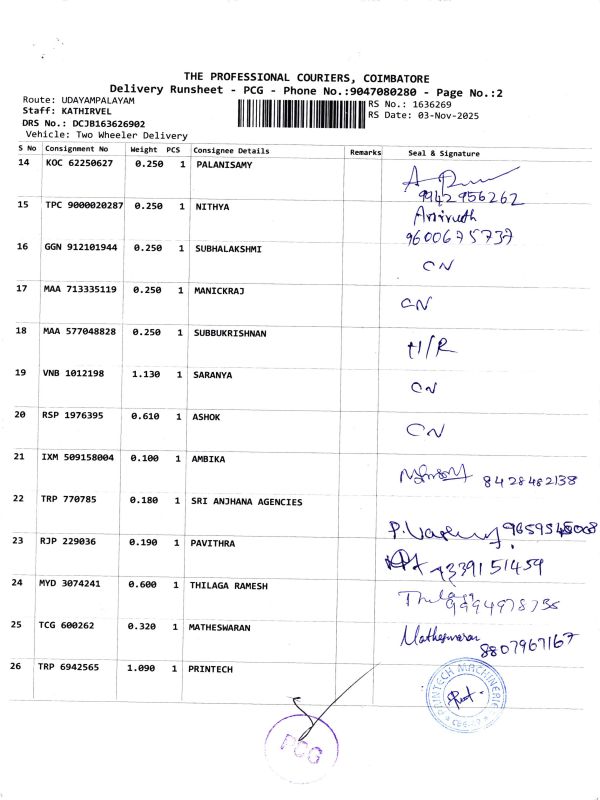 THE PROFESSIONAL COURIERS, COIMBATORE
Delivery Runsheet - PCG - Phone No.:9047080280 - Page No.:2
Route: UDAYAMPALAYAM
Staff: KATHIRVEL
DRS No.: DCJB163626902
Vehicle: Two Wheeler Delivery
RS No.: 1636269
RS Date: 03-Nov-2025
S No Consignment No Weight PCS Consignee Details Remarks Seal & Signature
14 KOC 62250627 0.250 1 PALANISAMY
9942956262
15 TPC 9000020287 0.250 1 NITHYA Anirudh
9600675737
16 GGN 912101944 0.250 1 SUBHALAKSHMI CN
17 MAA 713335119 0.250 1 MANICKRAJ CN
18 MAA 577048828 0.250 1 SUBBUKRISHNAN H/R
19 VNB 1012198 1.130 1 SARANYA CN
20 RSP 1976395 0.610 1 ASHOK CN
21 IXM 509158004 0.100 1 AMBIKA 8428482138
22 TRP 770785 0.180 1 SRI ANJHANA AGENCIES
23 RJP 229036 0.190 1 PAVITHRA 9339151459
24 MYD 3074241 0.600 1 THILAGA RAMESH Thilaga
25 TCG 600262 0.320 1 MATHESWARAN Matheswaran
8807967167
26 TRP 6942565 1.090 1 PRINTECH
PCG